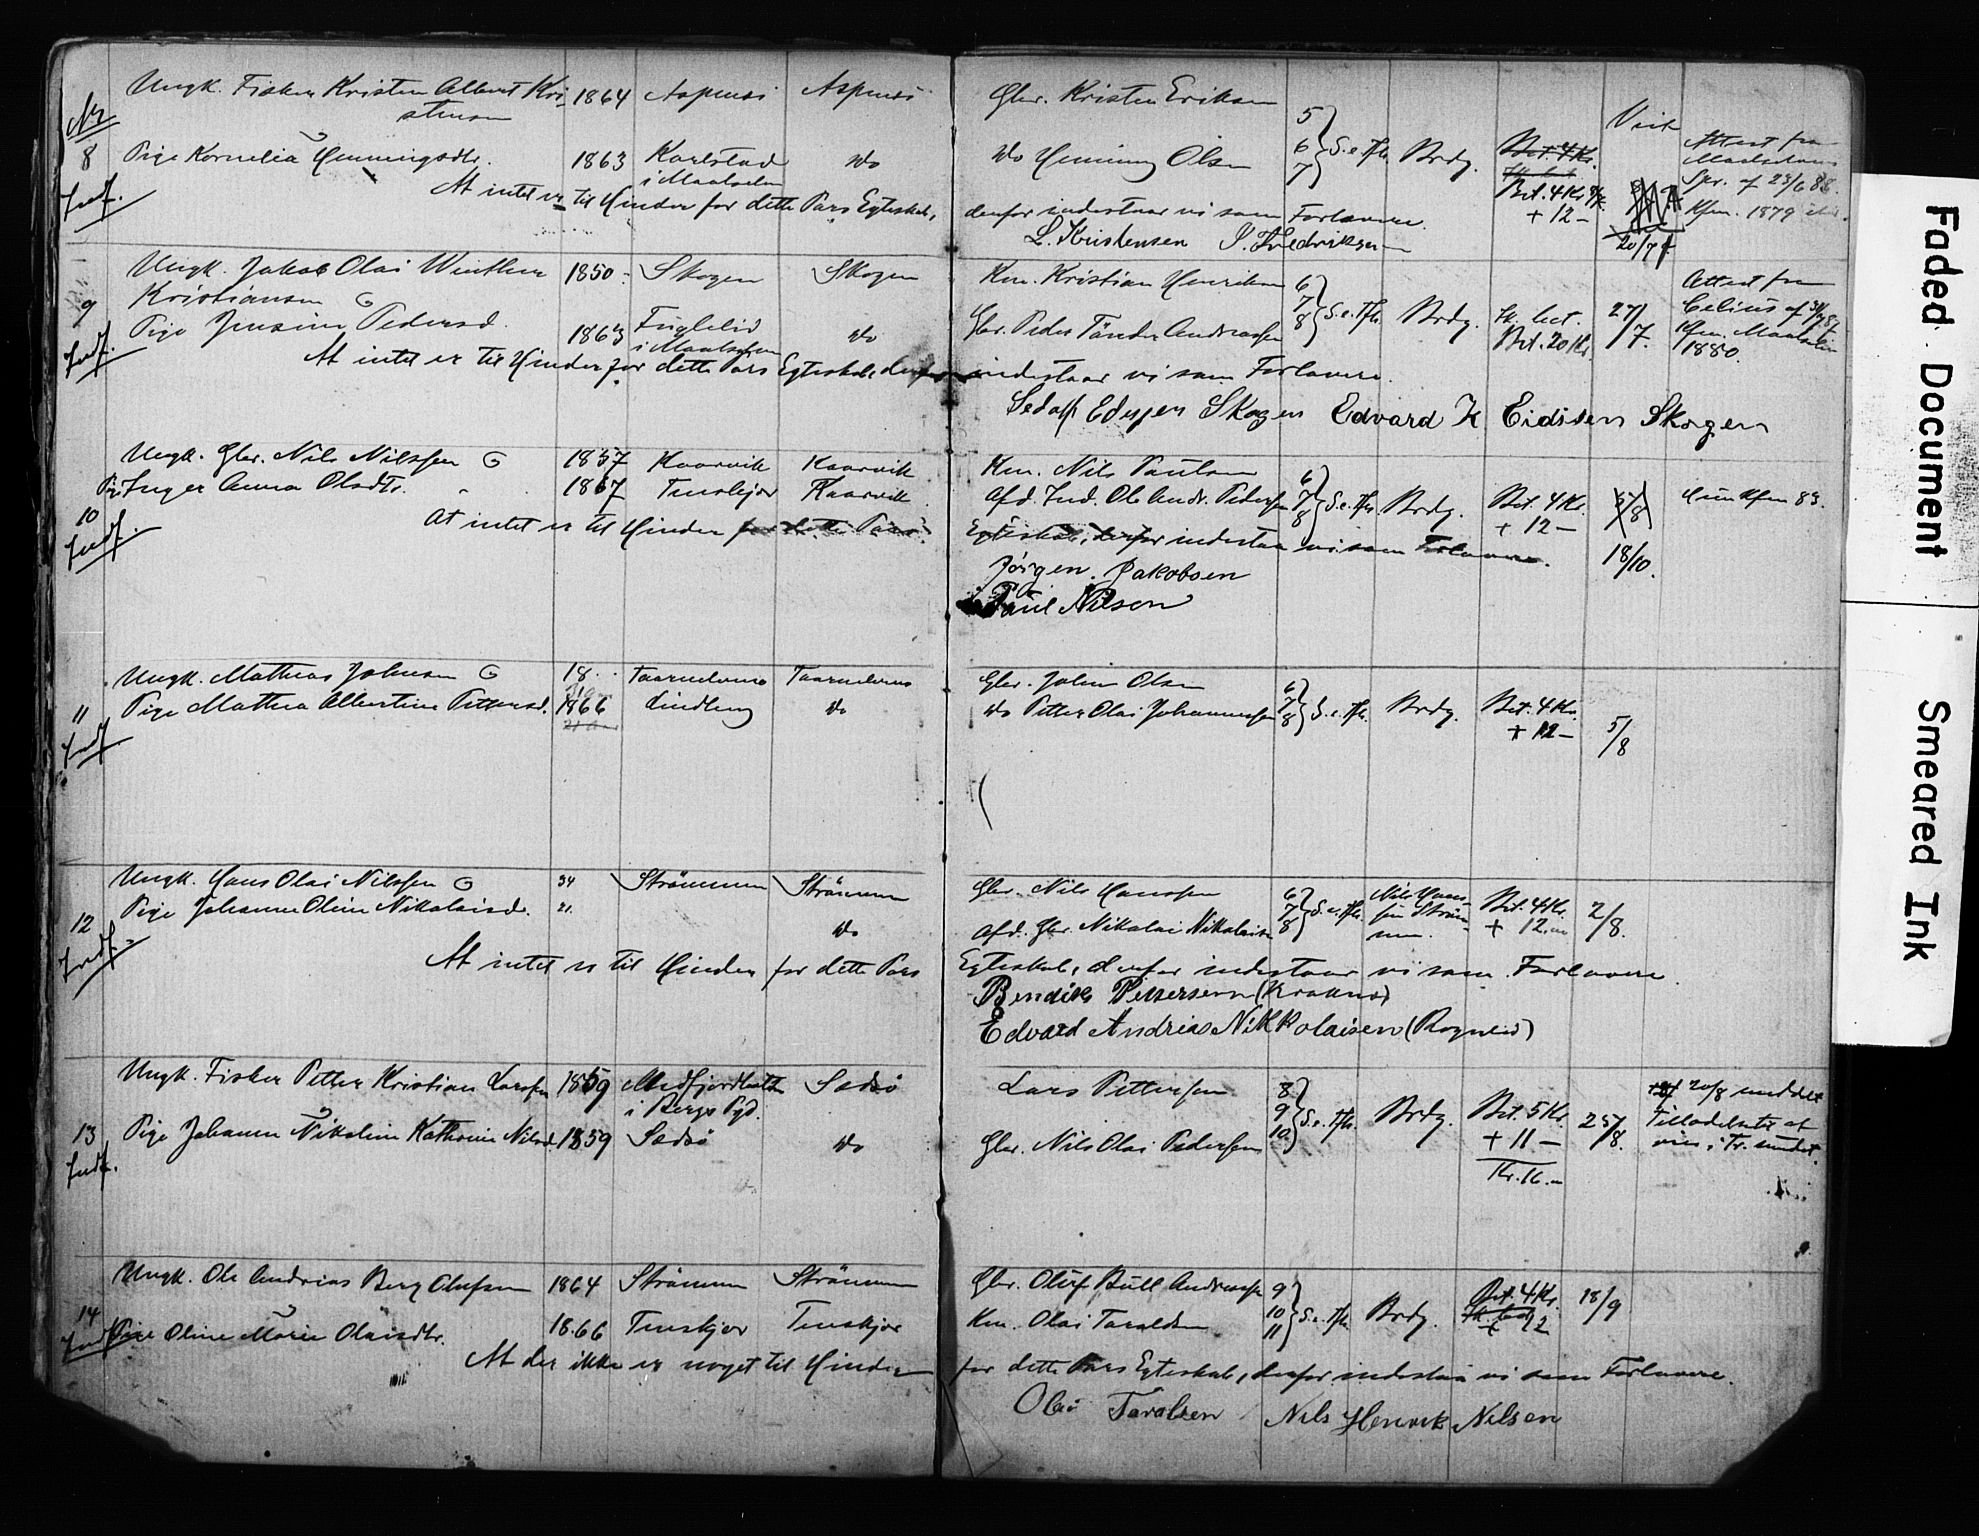 Ungk. Fisker Kristen Albert Kri- 1864 Aspenes Aspenes Gbr. Kristen Eriksen
stensen
No
8 Pige Kornelia Henningsdtr. 1863 Karlstad do do Henning Olsen 5 6 7 S. e. Tfk. Brdg. Bet. 4 Kr. Attest fra
i Maalselven
Bet. 4 Kr.
+ 12 –
Kfm. 1879
Indf.
At intet er til Hinder for dette Pars Egteskab, derfor indestaar vi som Forlovere.
20/7
L. Kristensen I. Fredriksen
Ungk. Jakob Olai Winther 1850 Skogen Skogen Km. Kristian Henriksen 6 7 8 S. e. Tfk. Brdg. Attest fra
Kristiansen
9 Pige Jensine Pedersd. 1863 Fuglelid do Gbr. Peder Tønder Andreassen Sk. bet. 27/7.
i Maalselven
Bet. 20 Kr.
Kfm. Maalselv
1880.
Indf.
At intet er til Hinder for dette Pars Egteskab, derfor indestaar vi som Forlovere.
Sedolf Edisen Skogen Edvard K Eidissen Skogen
Ungk. Gbr. Nils Nilssen 1857 Kaarvik Kaarvik Km. Nils Paulsen
Pige Inger Anna Olsdtr. 1867 Tenskjær Kaarvik Afd. Ind. Ole Andr. Pedersen 6 7 8 S. e. Tfk. Brdg. Bet. 4 Kr. Kfm 83.
10
+ 12 –
Indf.
At intet er til Hinder for dette Pars Egteskab, derfor indestaar vi som Forlovere. 18/10.
Jørgen. Jakobsen
Paul Nilsen
Ungk. Mathias Johnsen 18 Gbr. Johan Olsen
11 Pige Mathea Albertine Pettersd. 1866 Lindberg do do Petter Olai Johannessen 6 7 8 S. e. Tfk. Brdg. Bet. 4 Kr.
+ 12 – 5/8
Indf.
Ungk. Hans Olai Nilssen 34 Strømmen Strømmen Gbr. Nils Hanssen 6 7 8 S. e. Tfk. Nils Hans- Bet. 4 Kr. 2/8.
sen Strøm-
men.
+ 12.
12 Pige Johanne Oline Nikolaisd. 21. do Afd. Gbr. Nikolai Nikolaisen
Indf.
At intet er til Hinder for dette Pars Egteskab, derfor indestaar vi som Forlovere
Bendik Pettersen (Kraknes)
Edvard Andreas Nikkolaisen (Rogneid)
Ungk. Fisker Petter Kristian Larssen 1859 Medfjordbotn Sedsø Lars Pettersen 8 9 10 S. e. Tfk. Brdg. Bet. 5 Kr. 25/8. 20/8 meddelt
i Bergs Pgd.
Tilladelse at
vies i Tr. sundet.
13 Pige Johanne Nikoline Kathrine Nilsd. 1859 Sedsø do Gbr. Nils Olai Pedersen
+ 11 –
Kr. 16 –
Indf.
Ungk. Ole Andreas Berg Olufsen 1864 Strømmen Strømmen Gbr. Oluf Bull Andreassen 9 10 11 S. e. Tfk. Brdg. Bet. 4 Kr. 18/9
+ 12
14
Pige Oline Marie Olaisdtr. 1866 Tenskjær Tenskjær Km. Olai Taraldsen
Indf.
At der ikke er noget til Hinder for dette Pars Egteskab, derfor indestaa vi som Forlovere.
Olai Taralsen Nils Henrik Nilsen
Faded Document Smeared Ink